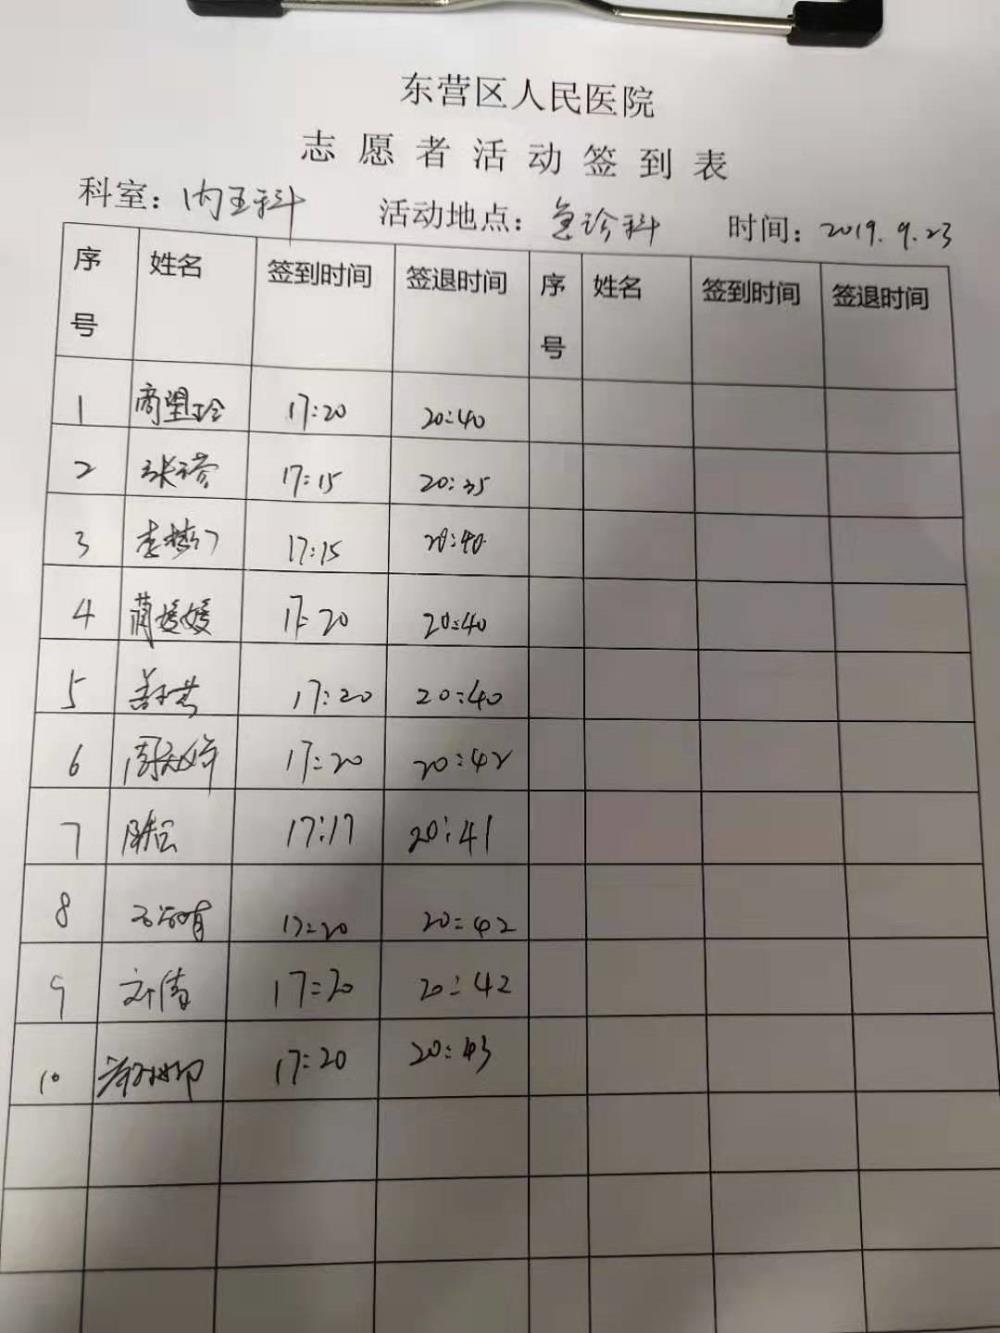 东营区人民医院
志愿者活动签到表
科室：内五科 活动地点：急诊科 时间：2019.9.23
序号 姓名 签到时间 签退时间 序号 姓名 签到时间 签退时间
1 商望玲 17:20 20:40
2 17:15 20:35
3 17:15 20:40
4 蔺媛媛 17:20 20:40
5 17:20 20:40
6 17:20 20:42
7 17:17 20:41
8 17:20 20:42
9 17:20 20:42
10 17:20 20:43